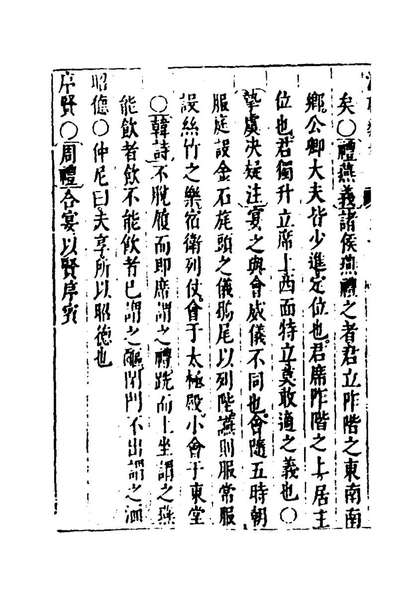 矣○禮燕義諸侯燕禮之者君立阼階之東南南
鄉公卿大夫皆少進定位也君席阼階之上居主
位也君獨升立席上西面特立莫敢適之義也○
摯虞决疑注宴之與會威儀不同也會隨五時朝
服庭設金石旄頭之儀鶡尾以列陛讌則服常服
設絲竹之樂宿衛列仗會于太極殿小會于東堂
○韓詩不脫屨而即席謂之禮跣而上坐謂之燕
能飲者飲不能飲者已謂之醧閉門不出謂之湎
昭德○仲尼曰夫享所以昭德也
序賢○周禮合宴以賢序賓